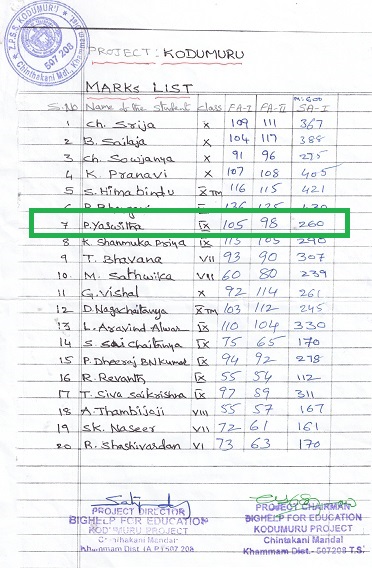 Z.P.S.S. KODUMURU
Chinthakani Mdl., Khammam Dist.
507 208
PROJECT: KODUMURU
MARKS LIST
M:600
S.No Name of the student Class FA-I FA-II SA-I
1 Ch. Srija X 109 111 367
2 B. Sailaja X 104 117 388
3 Ch. Sowjanya X 91 96 275
4 K. Pranavi X 107 108 405
5 S. Himabindu X TM 116 115 421
6
7 P. Yaswitha IX 105 98 260
8 K. Shanmuka Priya IX 115 105 290
9 T. Bhavana VII 93 90 307
10 M. Sathwika VII 60 80 239
11 G. Vishal X 92 114 261
12 D. Nagachaitanya X TM 103 112 245
13 L. Aravind Alwar IX 110 104 330
14 S. Sai Chaitanya IX 75 65 170
15 P. Dheeraj BN Kumar IX 94 92 278
16 R. Revanth IX 55 54 112
17 T. Siva Saikrishna IX 97 59 311
18 A. Thambijaji VIII 55 57 167
19 SK. Naseer VII 72 61 161
20 R. Shashivardan VI 73 63 170
PROJECT DIRECTOR
BIGHELP FOR EDUCATION
KODUMURU PROJECT
Chinthakani Mandal
Khammam Dist (A.P) 507 208
PROJECT CHAIRMAN
BIGHELP FOR EDUCATION
KODUMURU PROJECT
Chintakani Mandal
Khammam Dist.- 507208 T.S.